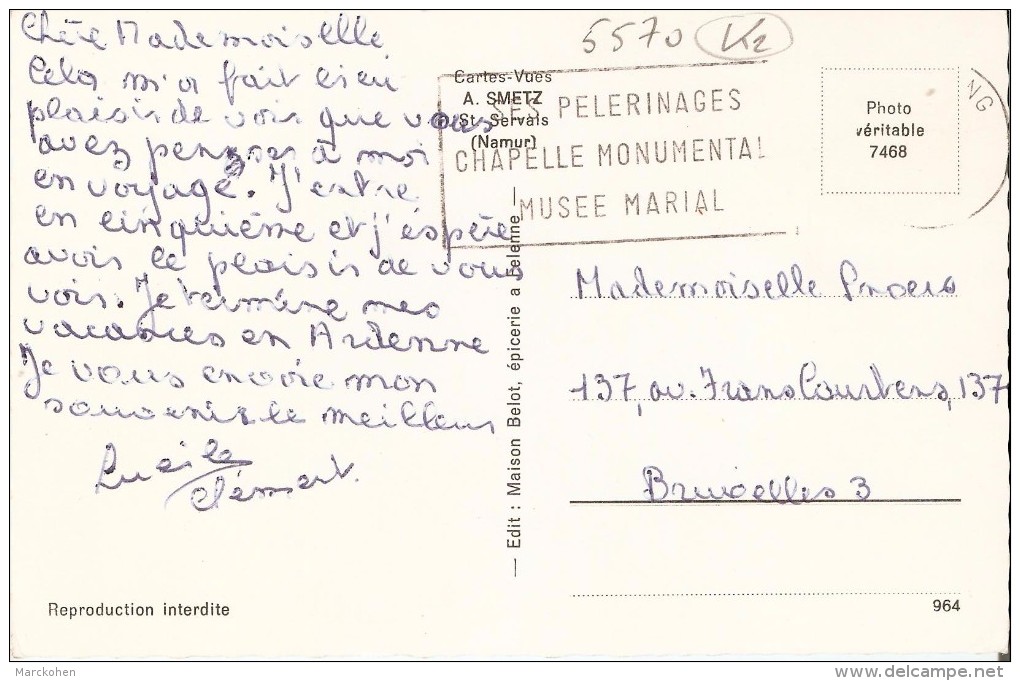 Chère Mademoiselle
Cela m'a fait bien
plaisir de voir que vous
avez penser à moi
en voyage. J'entre
en cinquième et j'espère
avoir le plaisir de vous
voir. Je termine mes
vacances en Ardenne
Je vous envoie mon
souvenir le meilleur
Lucile
Clément.
5570 K2
Cartes-Vues
A. SMETZ
St-Servais
(Namur)
SES PELERINAGES
CHAPELLE MONUMENTAL
MUSEE MARIAL
NG
Photo
véritable
7468
— Edit : Maison Belot, épicerie a Felenne —
Mademoiselle
137, av. Frans Courtens, 137
Bruxelles 3
Reproduction interdite
964
Marckohen
www.delcampe.net